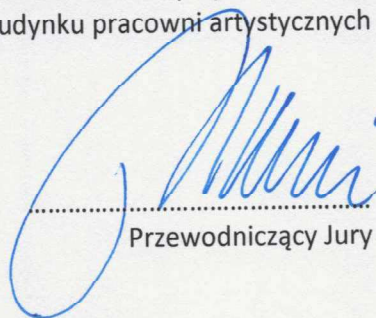 udynku pracowni artystycznych
........................................................
Przewodniczący Jury